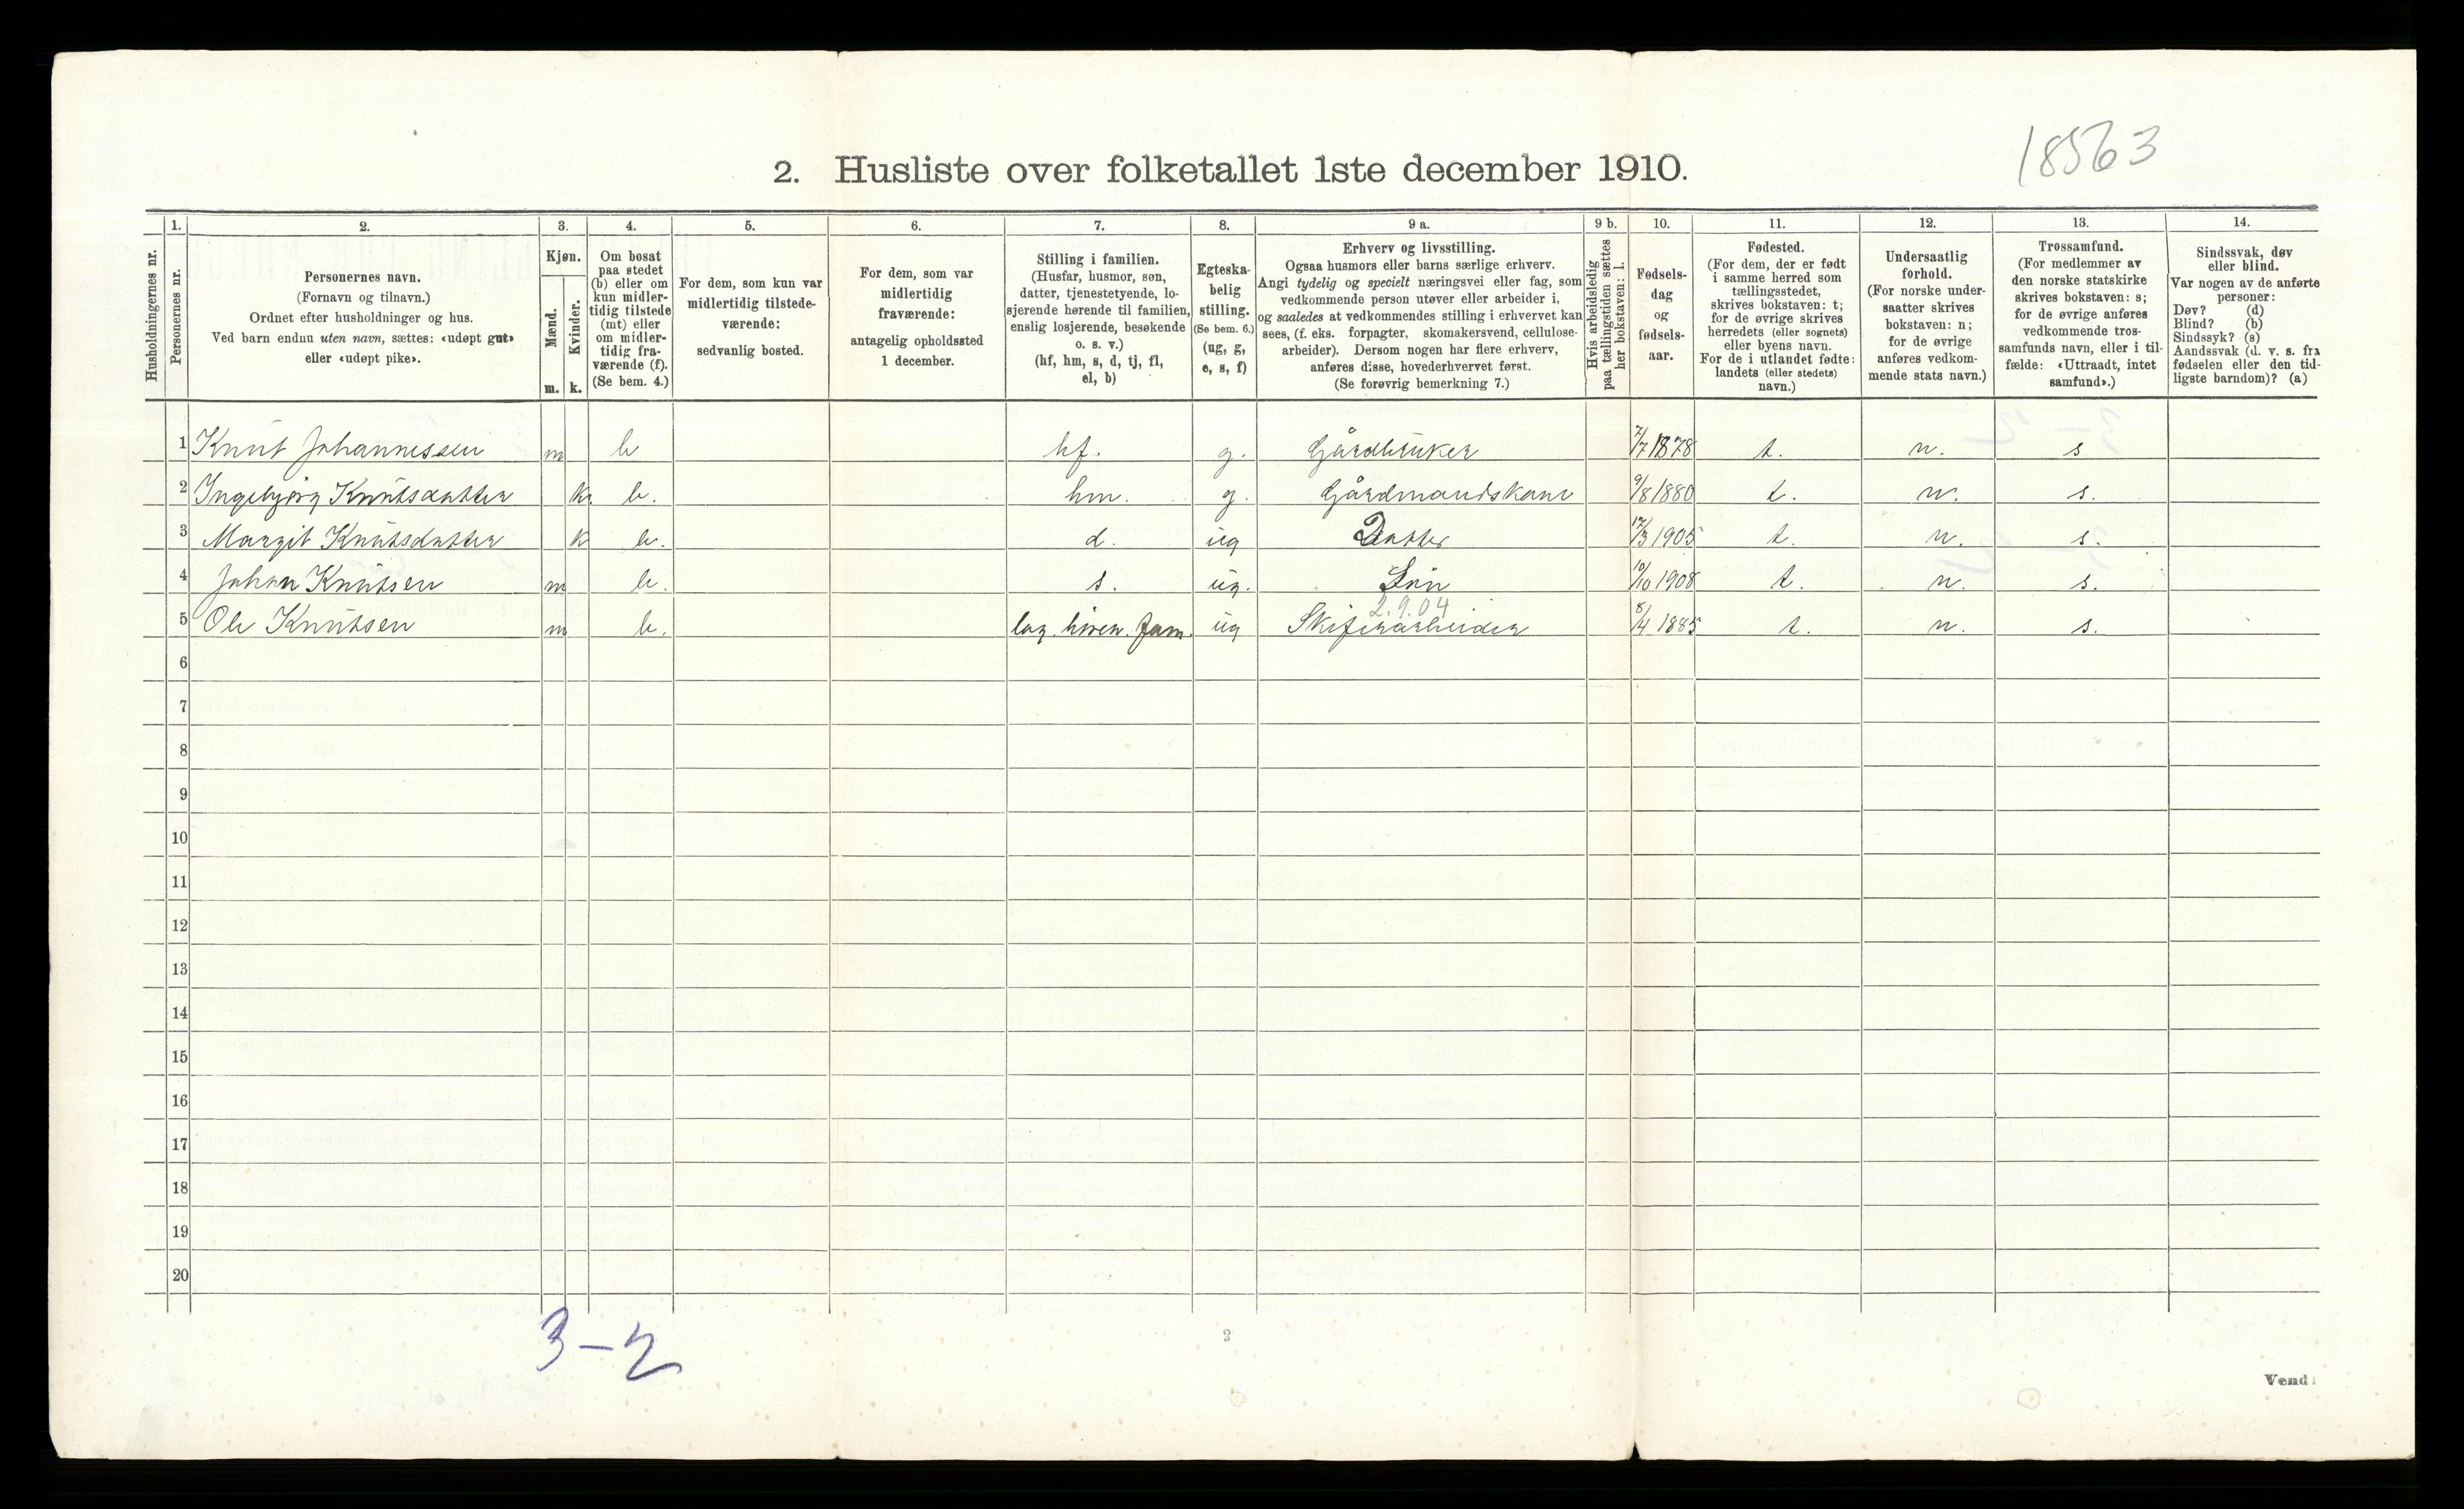 18563
2. Husliste over folketallet 1ste december 1910.
Husholdningernes nr.
1.
Personernes nr.
2.
Personernes navn.
(Fornavn og tilnavn.)
Ordnet efter husholdninger og hus.
Ved barn endnu uten navn, sættes: «udøpt gut»
eller «udøpt pike».
3.
Kjøn.
Mænd.
m.
Kvinder.
k.
4.
Om bosat
paa stedet
(b) eller om
kun midler-
tidig tilstede
(mt) eller
om midler-
tidig fra-
værende (f).
(Se bem. 4.)
5.
For dem, som kun var
midlertidig tilstede-
værende:
sedvanlig bosted.
6.
For dem, som var
midlertidig
fraværende:
antagelig opholdssted
1 december.
7.
Stilling i familien.
(Husfar, husmor, søn,
datter, tjenestetyende, lo-
sjerende hørende til familien,
enslig losjerende, besøkende
o. s. v.)
(hf, hm, s, d, tj, fl,
el, b)
8.
Egteska-
belig
stilling.
(Se bem. 6.)
(ug, g,
e, s, f)
9 a.
Erhverv og livsstilling.
Ogsaa husmors eller barns særlige erhverv.
Angi tydelig og specielt næringsvei eller fag, som
vedkommende person utøver eller arbeider i,
og saaledes at vedkommendes stilling i erhvervet kan
sees, (f. eks. forpagter, skomakersvend, cellulose-
arbeider). Dersom nogen har flere erhverv,
anføres disse, hovederhvervet først.
(Se forøvrig bemerkning 7.)
9 b.
Hvis arbeidsledig
paa tællingstiden sættes
her bokstaven: l.
10.
Fødsels-
dag
og
fødsels-
aar.
11.
Fødested.
(For dem, der er født
i samme herred som
tællingsstedet,
skrives bokstaven: t;
for de øvrige skrives
herredets (eller sognets)
eller byens navn.
For de i utlandet fødte:
landets (eller stedets)
navn.)
12.
Undersaatlig
forhold.
(For norske under-
saatter skrives
bokstaven: n;
for de øvrige
anføres vedkom-
mende stats navn.)
13.
Trossamfund.
(For medlemmer av
den norske statskirke
skrives bokstaven: s;
for de øvrige anføres
vedkommende tros-
samfunds navn, eller i til-
fælde: «Uttraadt, intet
samfund».)
14.
Sindssvak, døv
eller blind.
Var nogen av de anførte
personer:
Døv? (d)
Blind? (b)
Sindssyk? (s)
Aandssvak (d. v. s. fra
fødselen eller den tid-
ligste barndom)? (a)
1 Knut Johannessen m b hf. g. Gårdbruker 7/7 1878 t. n. s
2 Ingebjørg Knutsdatter k. b. hm. g. Gårdmandskone 9/8 1880 t. n. s.
3 Margit Knutsdatter k b. d. ug Datter 17/3 1905 t. n. s.
4 Johan Knutsen m b. s. ug. Søn 10/10 1908 t. n. s.
2.9.04
5 Ole Knutsen m b. fam. ug Skiferarbeider 8/4 1885 t. n. s.
6
7
8
9
10
11
12
13
14
15
16
17
18
19
20
3-2
2
Vend!